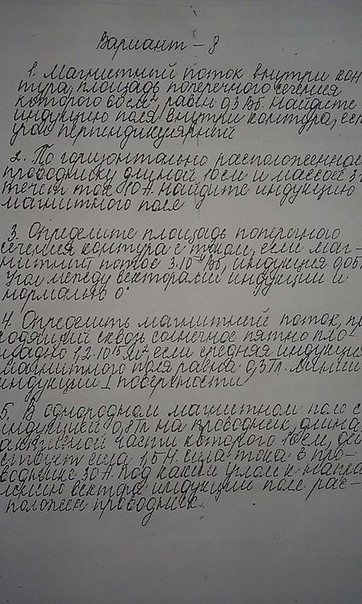 Вариант - 8
1. Магнитный поток внутри кон-
тура, площадь поперечного сечения
которого равен 0,3 Вб. Найдите
индукцию поля внутри контура, ес
угол перпендикулярный
2. По горизонтально расположенном
проводнику длиной 10 см и массой
течет ток 10А. Найдите индукцию
магнитного поле
3. Определите площадь поперечного
сечения контура с током, если маг-
нитный поток Вб, индукция
Угол между векторами индукции и
нормалью 0°
4. Определить магнитный поток, пр
ходящий сквозь солнечное пятно пло-
щадью если средняя индукция
магнитного поля равна 0,3Тл. Линии
индукции ⊥ поверхности
5. В однородном магнитном поле с
индукцией на проводник, длина
активной части которого 10 см, де
ствует сила Сила тока в про-
воднике Под каким углом к напра
лению вектора индукции поле рас-
положен проводник.